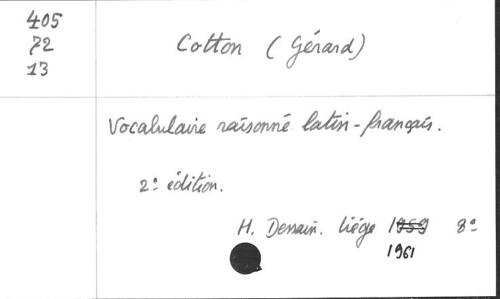 405
72
13
Cotton (Gérard)
Vocabulaire raisonné latin-français.
2e édition.
H. Dessain. Liége 1959 8o
1961